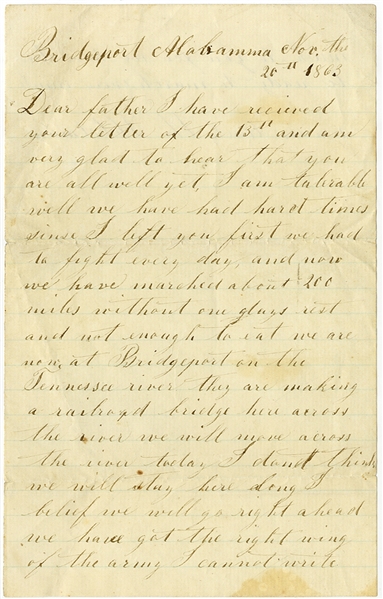 Bridgeport Alabamma Nov. the
20th 1863
Dear father I have recieved
your letter of the 15th and am
very glad to hear that you
are all well yet, I am tolerable
well we have had hard times
sense I left you first we had
to fight every day, and now
we have marched about 200
miles without one days rest
and not enough to eat we are
now at Bridgeport on the
Tennessee river they are making
a railroyd bridge here across
the river we will move across
the river today I dondt think
we will stay here long I
belief we will go right ahead
we have got the right wing
of the army I cannot write